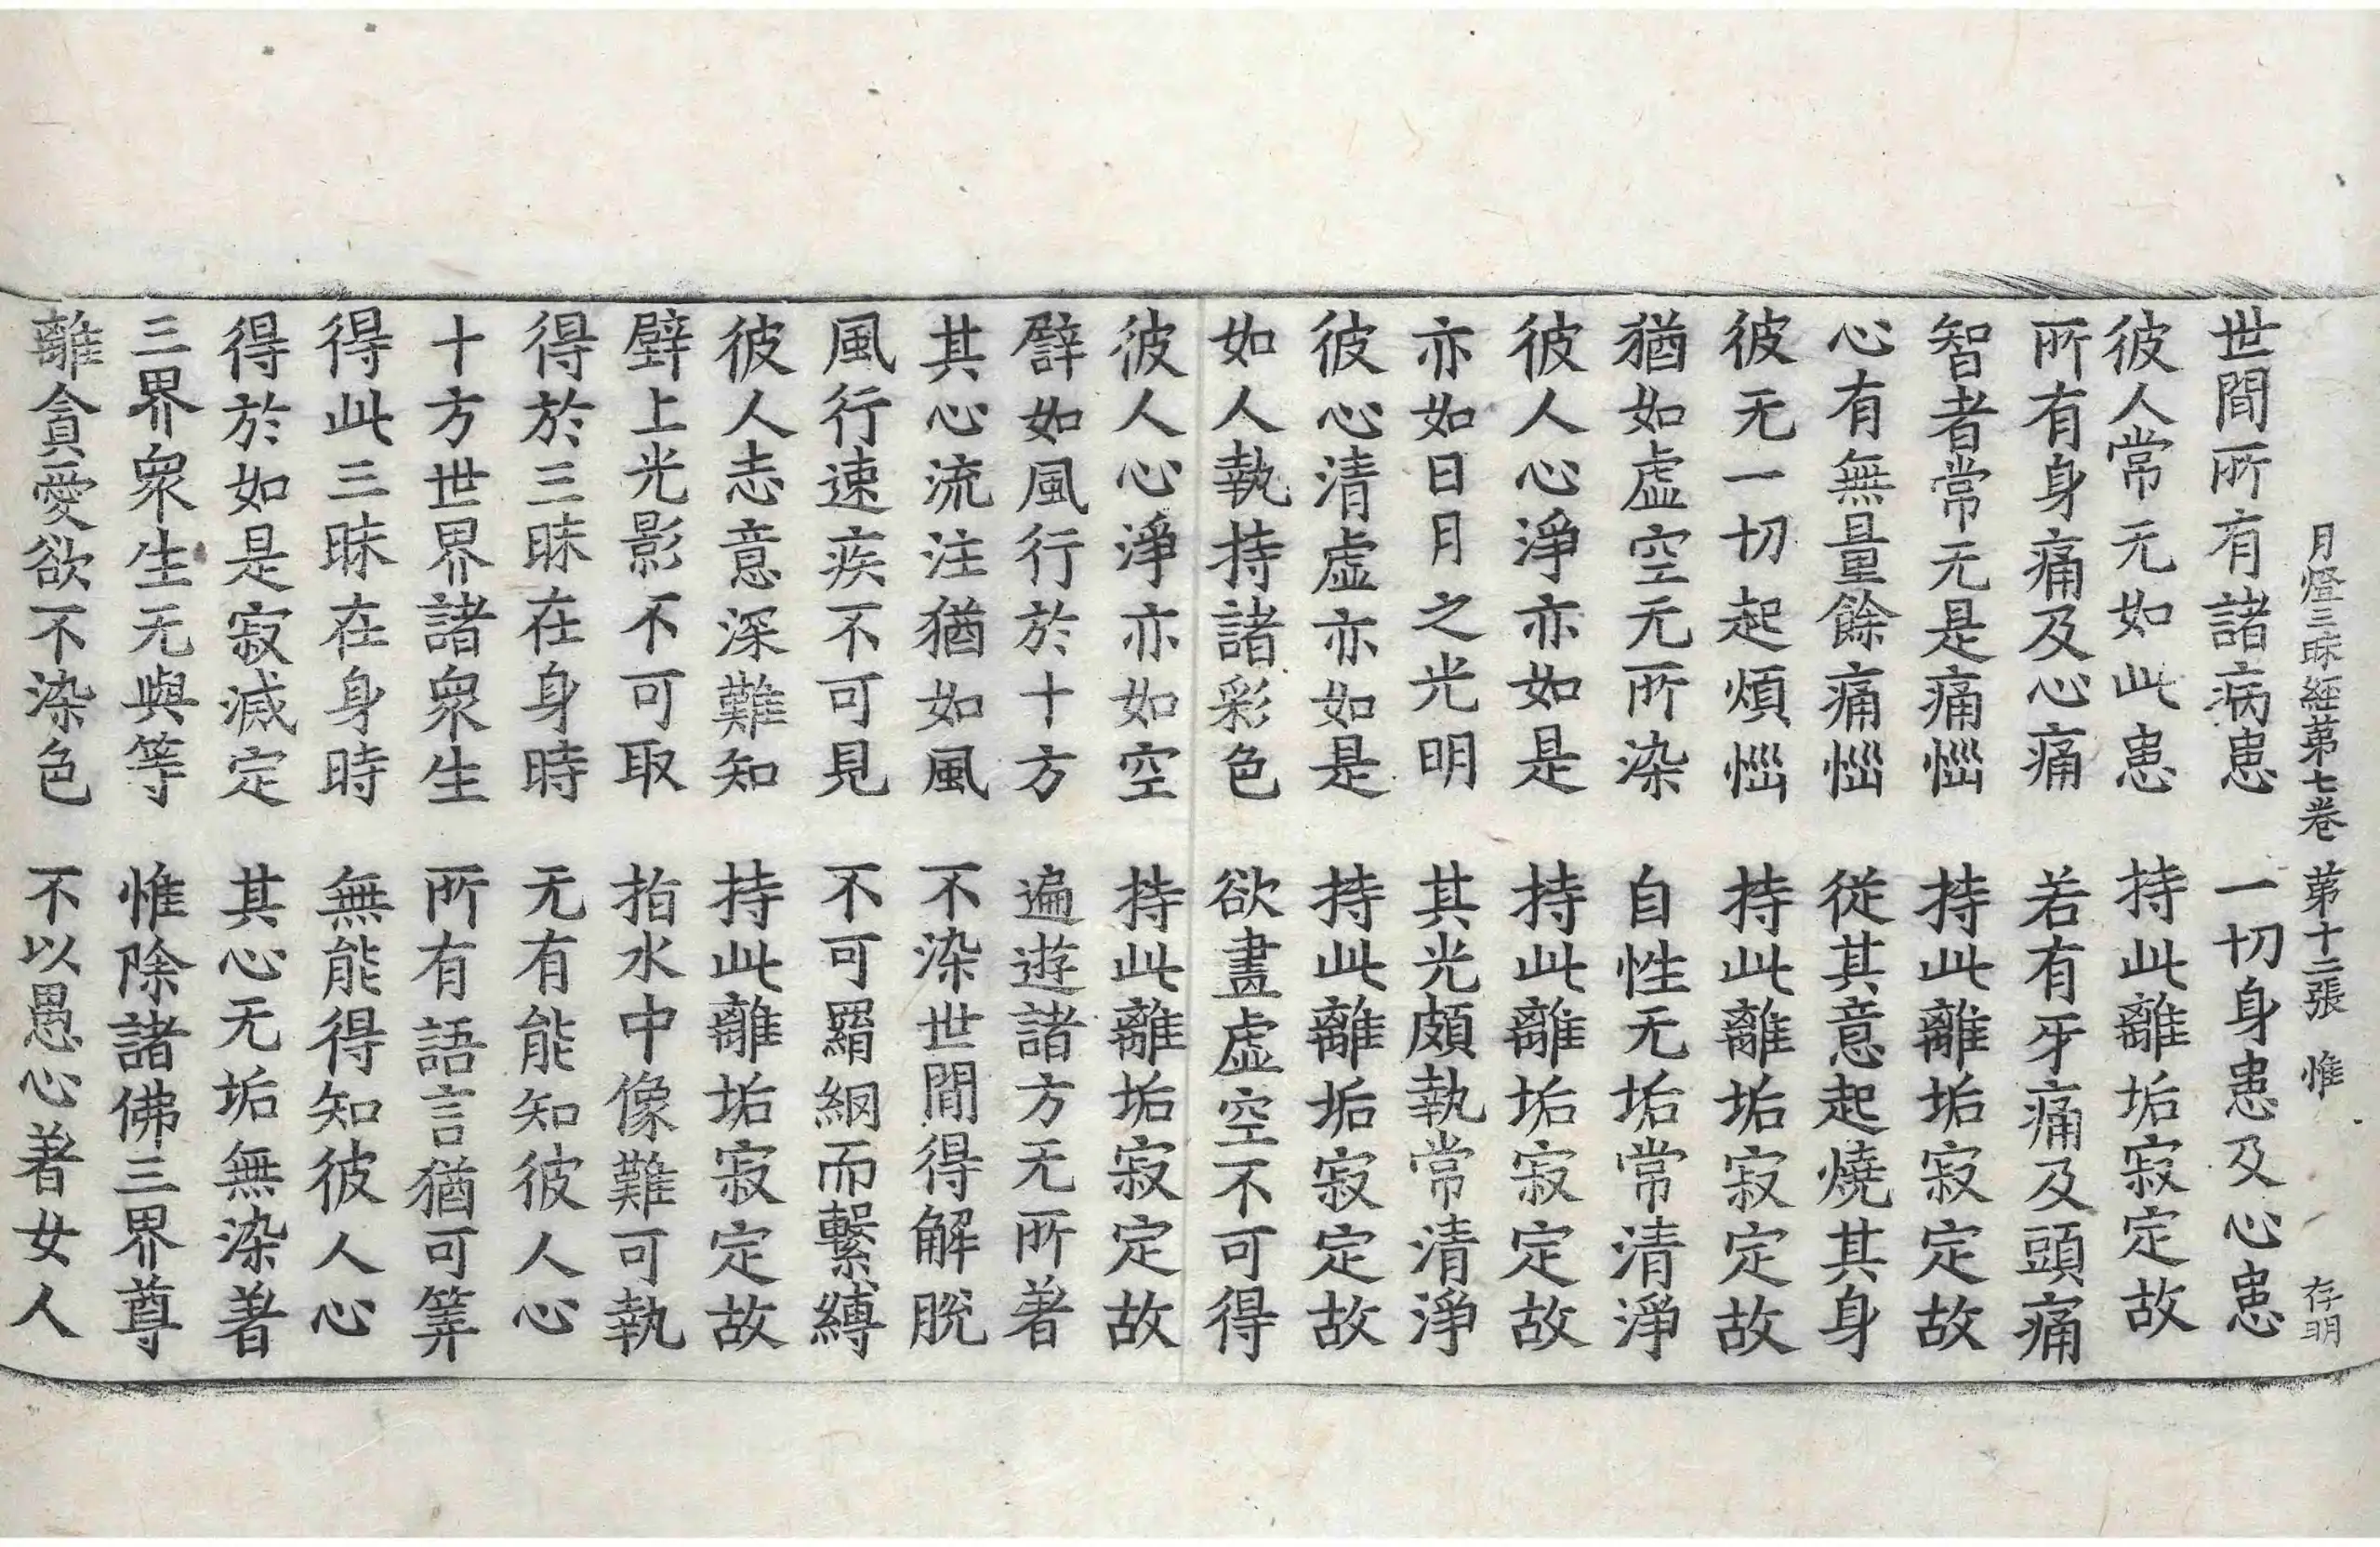 月燈三昧經第七卷 第十二張 惟 存明
世間所有諸病患 一切身患及心患
彼人常无如此患 持此離垢寂定故
所有身痛及心痛 若有牙痛及頭痛
智者常无是痛惱 持此離垢寂定故
心有無量餘痛惱 從其意起燒其身
彼无一切起煩惱 持此離垢寂定故
猶如虛空无所染 自性无垢常清淨
彼人心淨亦如是 持此離垢寂定故
亦如日月之光明 其光頗執常清淨
彼心清虛亦如是 持此離垢寂定故
如人執持諸彩色 欲畫虛空不可得
彼人心淨亦如空 持此離垢寂定故
譬如風行於十方 遍遊諸方无所著
其心流注猶如風 不染世間得解脫
風行速疾不可見 不可羂網而繫縛
彼人志意深難知 持此離垢寂定故
壁上光影不可取 拍水中像難可執
得於三昧在身時 无有能知彼人心
十方世界諸衆生 所有語言猶可筭
得此三昧在身時 無能得知彼人心
得於如是寂滅定 其心无垢無染著
三界衆生无與等 惟除諸佛三界尊
離貪愛欲不染色 不以愚心著女人